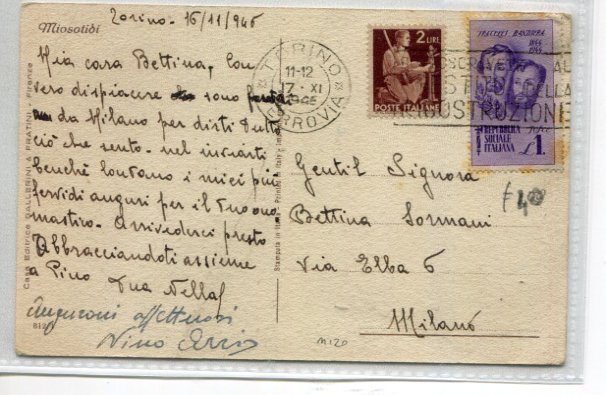 Torino - 16/11/946
Miosotidi
Mia cara Bettina, con
vero dispiacere sono
da Milano per dirti tutto
ciò che sento - nel inviarti
benché lontano i miei più
fervidi auguri per il tuo ono
mastico. Arrivederci presto
Abbracciandoti assieme
a Pino tua Nella
Auguroni affettuosi
Nino
812
Casa Editrice BALLERINI & FRATINI - Firenze
Stampata in Italia - Printed in Italy
TORINO
11-12
17 · XI
FERROVIA
2 LIRE
POSTE ITALIANE
FRATELLI BANDIERA
1844
1944
REPUBBLICA
SOCIALE
ITALIANA
£1
RICOSTRUZIONE
Gentil Signora
Bettina Sormani
Via Elba 6
Milano
M120